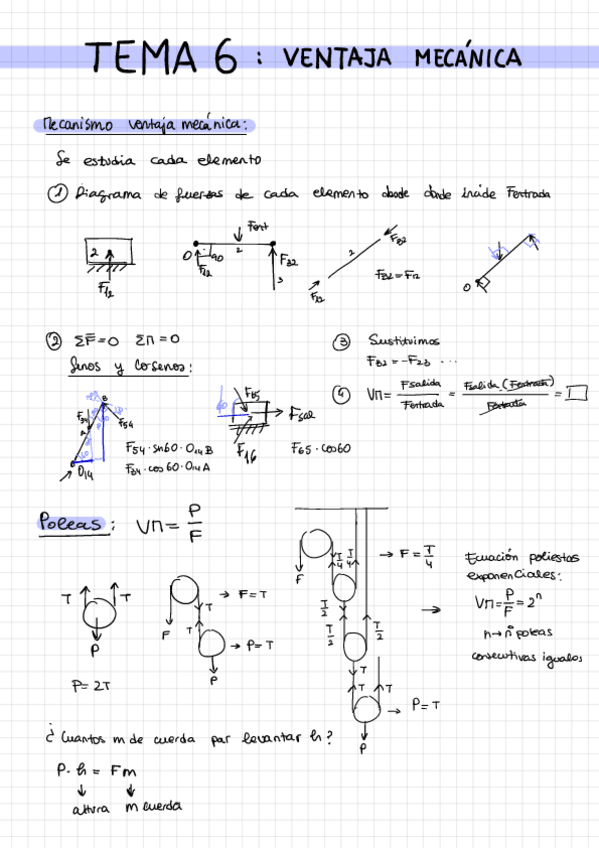 TEMA 6 : VENTAJA MECÁNICA
Mecanismo ventaja mecánica:
Se estudia cada elemento
① Diagrama de fuerzas de cada elemento desde donde incide Fentrada
2
F12
Fent
O
90
2
F12
F32
3
2
F32
F12
F32 = F12
O
② ΣF̅=0 ΣM=0
Senos y cosenos:
B
F34
F54
A
60
O14
F54 · sen60 · O14 B
F34 · cos60 · O14 A
60
F65
Fsal
F16
F65 · cos60
③ Sustituimos
F32 = -F23 ...
④ VM= Fsalida / Fentrada = Fsalida (Fentrada) / Fentrada =
Poleas: VM= P/F
T T
P
P= 2T
F
T
T
P
→ F=T
→ P= T
F
T/4 T/4
T/2
T/2
T/2
T
T T
P
→ F= T/4
→ P= T
→
Ecuación poliestas
exponenciales:
VM= P/F = 2ⁿ
n→ nº poleas
consecutivas iguales
¿Cuantos m de cuerda par levantar h?
P. h = F m
↓ ↓
altura m cuerda